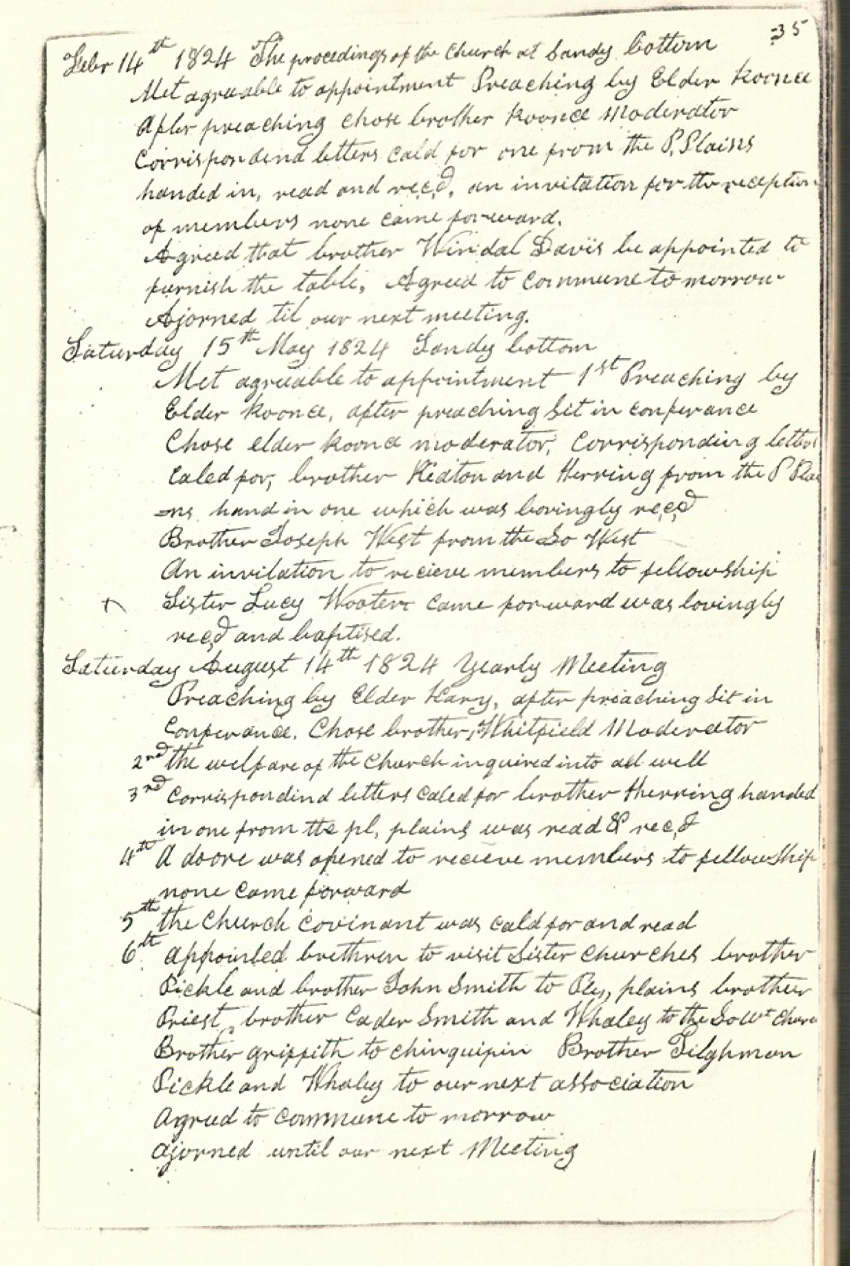 35
Febr 14th 1824 The procedings of the Church at Sandy bottom
Met agreeable to appointment Preaching by Elder Koonce
After preaching chose brother Koonce Moderator
Corrispondend letters cald for one from the P. Plains
handed in, read and rec,d, an invitation for the reception
of members none came forward.
Agreed that brother Windal Davis be appointed to
furnish the table, Agreed to commune to morrow
Ajorned til our next meeting.
Saturday 15th May 1824 Sandy bottom
Met agreable to appointment 1st Preaching by
Elder Koonce, after preaching Sit in conferance
Chose elder Koonce moderator, Corrisponding letters
Caled for, brother Keaton and Herring from the P Plai
=ns hand in one which was lovingly rec,d
Brother Joseph West from the So West
An invitation to recieve members to fellowship
Sister Lucy Wooten came forward was lovingly
rec,d and baptised.
Saturday August 14th 1824 Yearly Meeting
Preaching by Elder Kary, after preaching Sit in
Conferance. Chose brother, Whitfield Moderator
2nd the welfare of the Church inquired into all well
3rd corrispondind letters caled for brother Herring handed
in one from the pl, plains was read & rec,d
4th A doore was opened to recieve members to fellowship
none came forward
5th the Church Covinant was cald for and read
6th appointed brethren to visit Sister Churches brother
Pickle and brother John Smith to Ply, plains brother
Priest, brother Cader Smith and Whaley to the So Wt
Brother griffith to chinquipin Brother Tilghman
Pickle and Whaley to our next association
Agreed to commune to morrow
Ajorned until our next Meeting